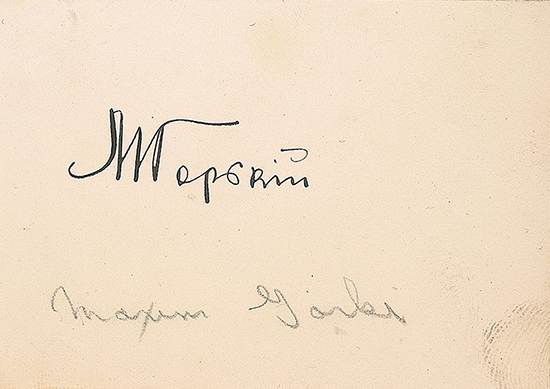 М Горькiй
Maxim Gorki